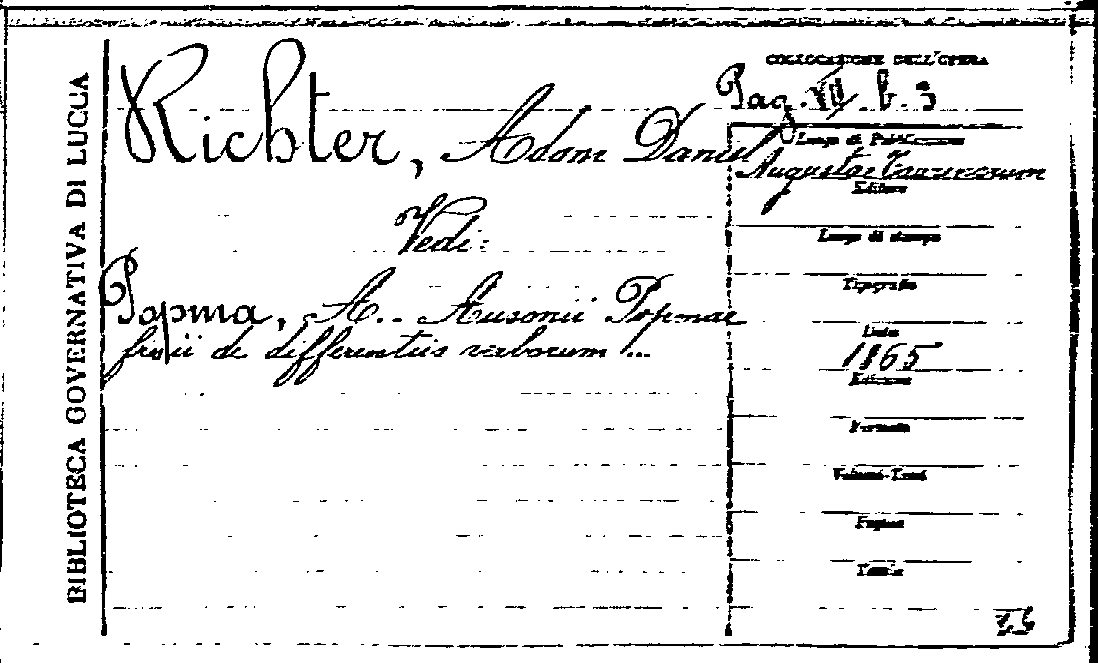 BIBLIOTECA GOVERNATIVA DI LUCCA
Richter, Adam Daniel
Vedi:
Popma, A.. Ausonii Popmae
frisii de differentiis verborum ...
COLLOCAZIONE DELL'OPERA
Pag. VII. b. 3
Luogo di Pubblicazione
Augustae Taurinorum
Editore
Luogo di stampa
Tipografia
Data
1865
Edizione
Formato
Volumi-Tomi
Pagine
Tavole